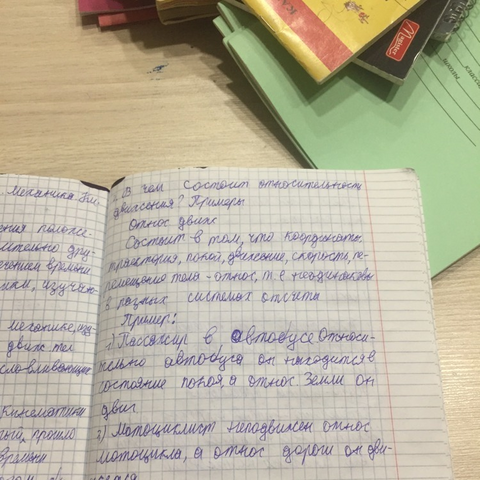 Magister
Механика
ения положе-
ительно дру-
ечением времени
изучаю-
механике, изу-
движ. тел
словливающих
Кинематики
прошло
времени
В чем состоит относительность
движения? Примеры
Относ движ
Состоит в том, что координаты,
траектория, покой, движение, скорость, пе-
ремещение тела - относ, т.е неодинаковы
в разных системах отсчета
Пример:
1) Пассажир в автобусе Относи-
тельно автобуса он находится в
состояние покоя, а относ. Земли он
движ
2) Мотоциклист неподвижен относ
мотоцикла, а относ дороги он дви-